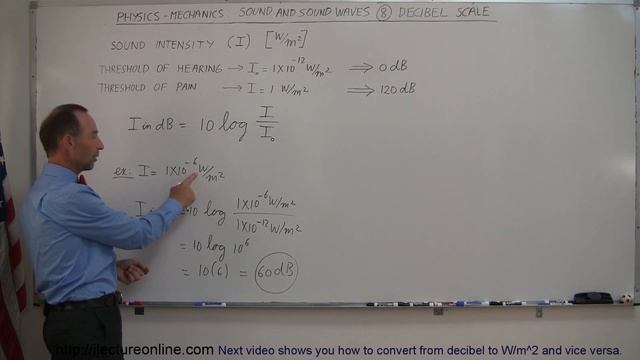 PHYSICS - MECHANICS SOUND AND SOUND WAVES ⑧ DECIBEL SCALE
SOUND INTENSITY (I) [W/m²]
THRESHOLD OF HEARING → I₀ = 1×10⁻¹² W/m² ⟹ 0 dB
THRESHOLD OF PAIN → I = 1 W/m² ⟹ 120 dB
I in dB = 10 log I/I₀
ex: I = 1×10⁻⁶ W/m²
10 log 1×10⁻⁶ W/m² / 1×10⁻¹² W/m²
= 10 log 10⁶
= 10(6) = 60 dB
http://ilectureonline.com Next video shows you how to convert from decibel to W/m^2 and vice versa.